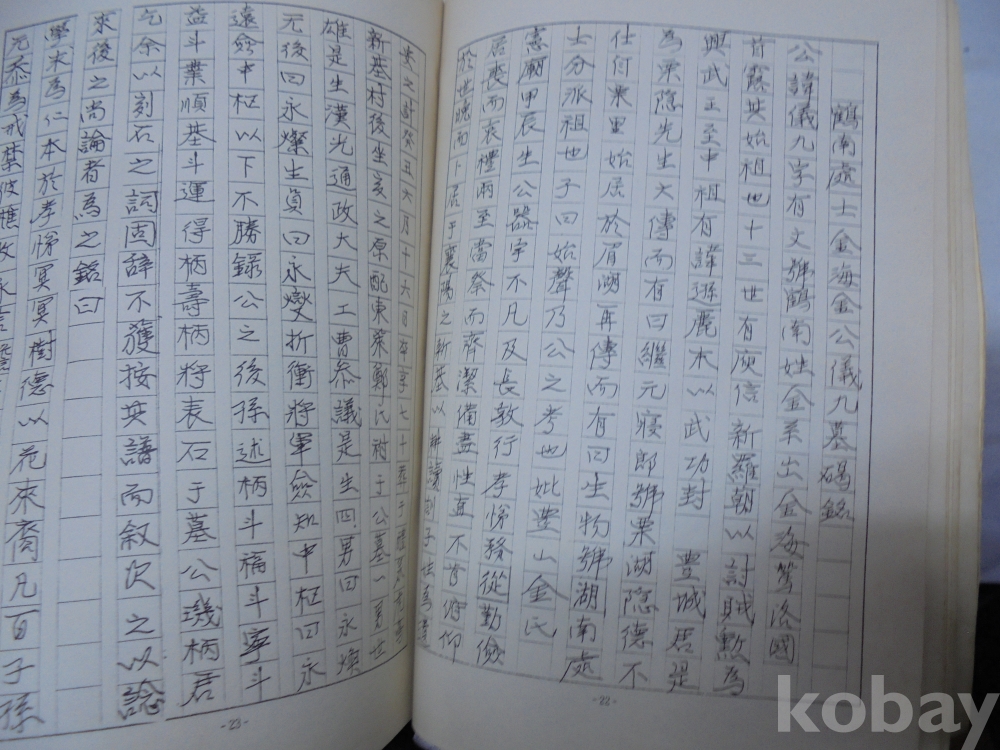 鶴南處士金海金公儀九墓碣銘
公諱儀九字有文號鶴南姓金系出金海駕洛國
首露其始祖也十三世有庾信新羅朝以討賊勲為
興武王至中祖有諱遜麗末以武功封 豊城君是
為栗隠先生六傳而有曰繼元寝郎號栗湖隠德不
仕付栗里始居於眉湖再傳而有曰生物號湖南處
士分派祖也子曰始聲乃公之考也妣豊山金氏
憲廟甲辰生公器宇不凡及長敦行孝悌務從勤儉
居喪而哀禮兩至當祭而齊潔備盡性直不苟俯仰
於世晩而卜居于襄陽之新基以耕讀
癸丑六月十六日
新基村後坐亥之原配東萊鄭氏祔于公墓一男世
雄是生漢光通政大夫工曹叅議是生四男曰永煥
元後曰永燦生員曰永燮折衝將軍僉知中枢曰永
遠僉中枢以下不勝録公之後孫述柄斗福斗寧斗
益斗業順基斗運得柄壽柄将表石于墓公璣柄君
乞余以刻石之詞固辞不獲按其譜而叙次之以諗
來後之尚論者為之銘曰
學末為仁本於孝悌冥冥樹德以花來裔凡百子孫
元忝為戒禁彼樵牧永言
-22-
-23-
kobay